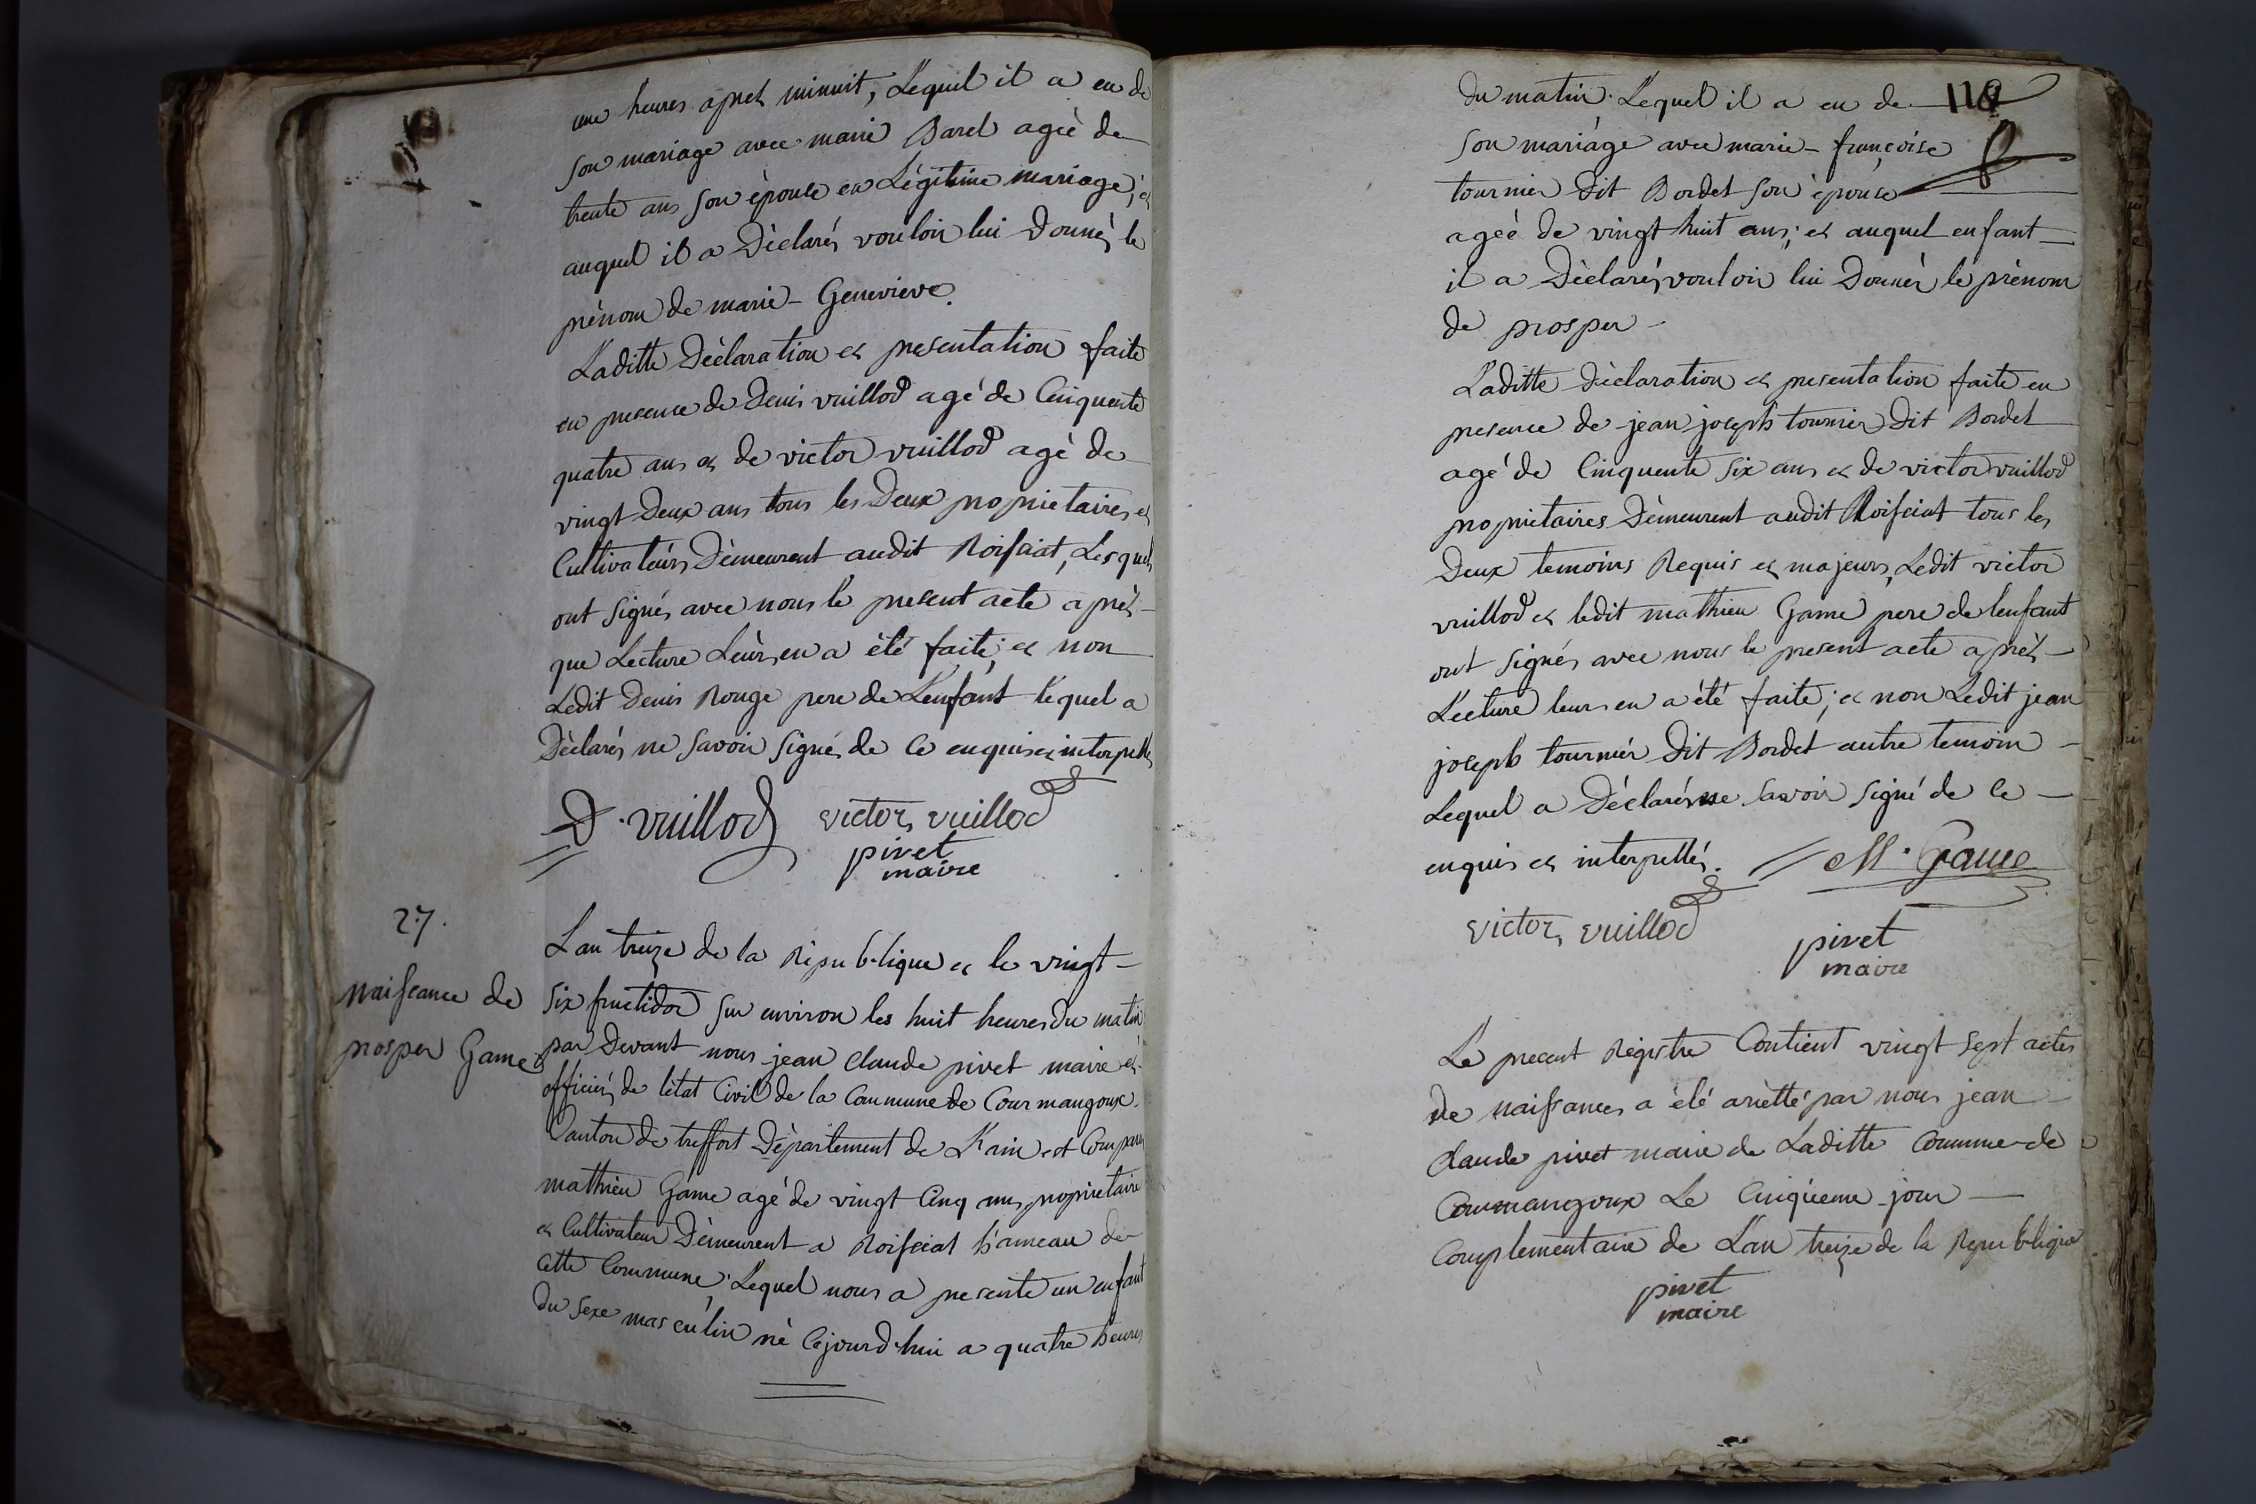 une heures aprés minuit, Lequel il a eu de
son mariage avec marie Barel agée de
trente ans son épouse en Légitime mariage, et
auquel il a Déclarés vouloir lui Donnés le
prénom de marie - Genevieve.
Laditte Déclaration et presentation faite
en presence de Denis vuillod agé de Cinquente
quatre ans et de victor vuillod agé de
vingt Deux ans tous les Deux propriétaires et
Cultivateurs Démeurent audit Roissiat, Lesquels
ont signés avec nous le present acte aprés
que Lecture Leurs en a été faite; et non
Ledit Denis Rouge pere de L'enfant lequel a
Déclarés ne savoir signé, de ce enquis et interpellés
D. vuillod victor vuillod
pivet
maire
27.
naissance de
prosper Game
L'an treize de la République et le vingt
six fructidor sur environ les huit heures du matin
par Devant nous jean Claude pivet maire et
officiés de létat Civil de la Commune de Courmangoux
Canton de treffort Département de L'ain est Comparu
mathieu Game agé de vingt Cinq ans, propriétaire
et Cultivateur Démeurent a Roissiat hameau de
cette Commune; Lequel nous a presenté un enfant
du sexe masculin né Cejourd'hui a quatre heures
118
du matin. Lequel il a eu de
son mariage avec marie - françoise
tournier Dit Bordet son épouse
agée de vingt huit ans; et auquel enfant
il a Déclarés vouloir lui Donnér le prénom
de prosper -
Laditte déclaration et presentation faite en
presence de jean joseph tournier Dit Bordet
agé de Cinquente six ans et de victor vuillod
propriétaires Démeurent audit Roissiat tous les
Deux temoins Requis et majeurs, Ledit victor
vuillod et ledit mathieu Game pere de lenfant
ont signés avec nous le present acte aprés
Lecture leurs en a été faite; et non Ledit jean
joseph tourniér Dit Bordet autre temoin
Lequel a Déclarés ne savoir signé de ce
enquis et interpellés. M. Game
victor vuillod
pivet
maire
Le present Régistre Contient vingt sept actes
de naissances a été arretté par nous jean
Claude pivet maire de Laditte Commune de
Courmangoux Le Cinquieme jour
Complementaire de L'an treize de la Republique
pivet
maire